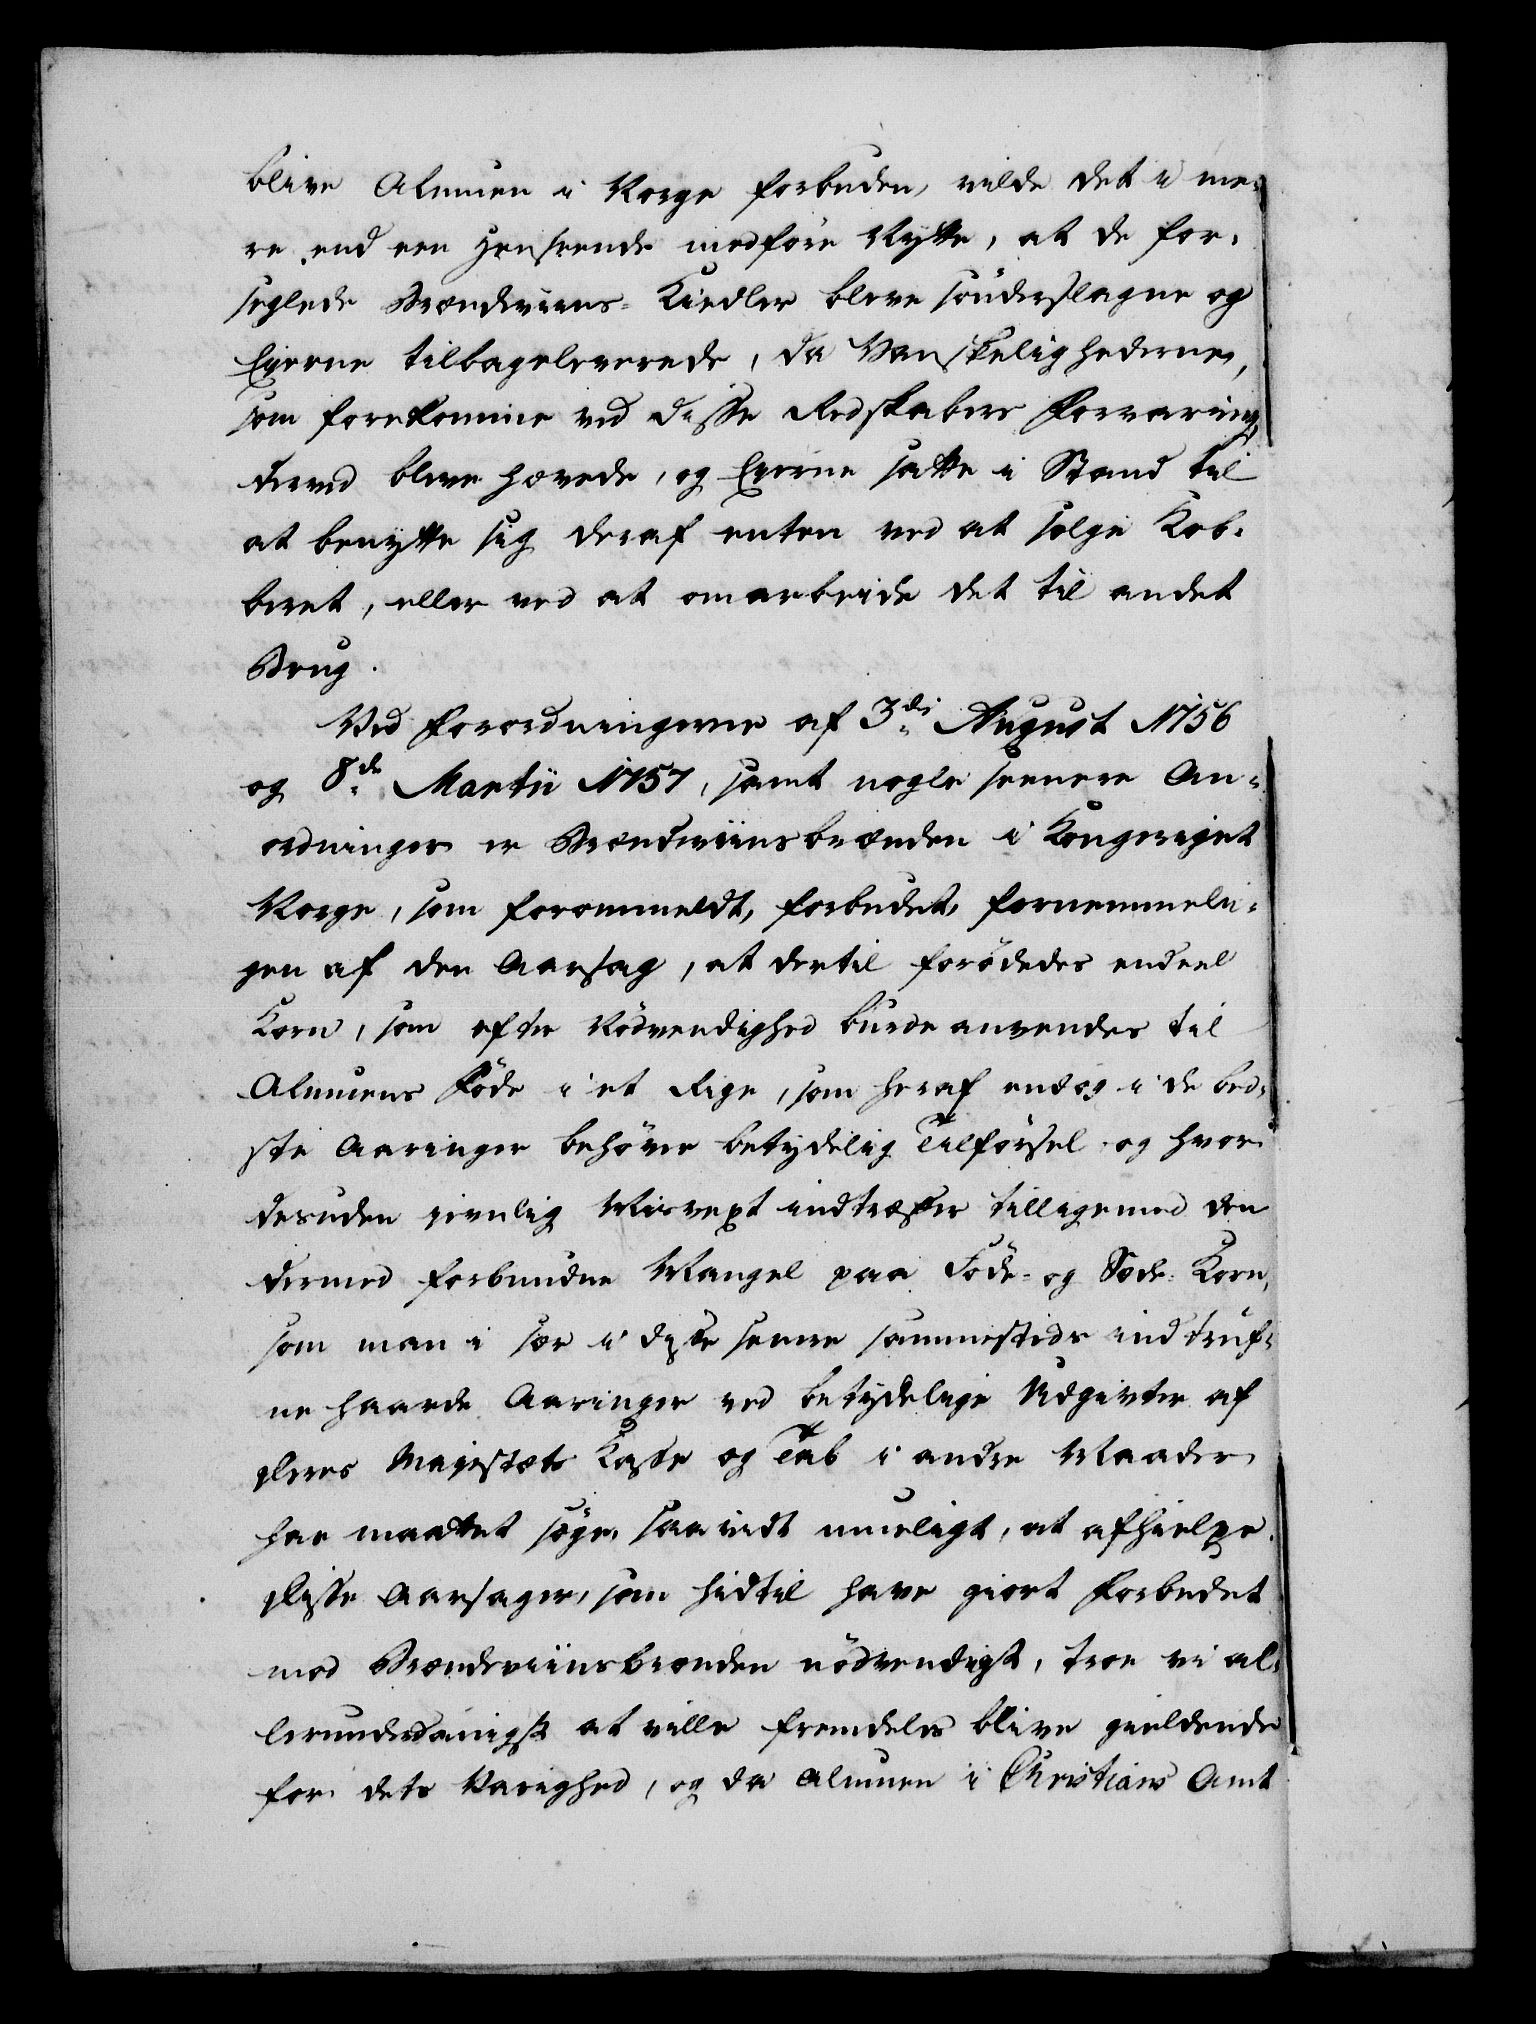 blive Almuen i Norge forbuden, vilde det i me-
re end een Henseende medføre Nytte, at de for-
seglede Brændeviins-Kiedler bleve sönderslagne og
Eierne tilbageleverede, da Vanskelighederne,
som forekomme ved disse Redskabers Forvaring,
derved bleve hævede, og Eierne satte i Stand til
at benytte sig deraf enten ved at sælge Kob-
beret, eller ved at omarbeide det til andet
Brug.
Ved Forordningerne af 3die August 1756
og 8de Martii 1757, samt nogle seenere An-
ordninger er Brændeviinsbrænden i Kongeriget
Norge, som forommeldt, forbudet, fornemmeli-
gen af den Aarsag, at dertil forödedes endeel
Korn, som efter Nödvendighed burde anvendes til
Almuens Föde i et Rige, som heraf endog i de bed-
ste Aaringer behöver betydelig Tilförsel og hvor
desuden jevnlig Misvext indtræffer tilligemed den
dermed forbundne Mangel paa Föde- og Sæde-Korn,
som man i sær i disse senere sammesteds indtruf-
ne haarde Aaringer ved betydelige Udgivter af
Deres Majestæts Kasse og Tab i andre Maader
har maattet söge, saavidt mueligt, at afhielpe.
Disse Aarsager, som hidtil have giort Forbudet
mod Brændeviinsbrænden nödvendigt, troe vi al-
lerunderdanigst at ville fremdeles blive gieldende
for dets Varighed, og da Almuen i Christians Amt